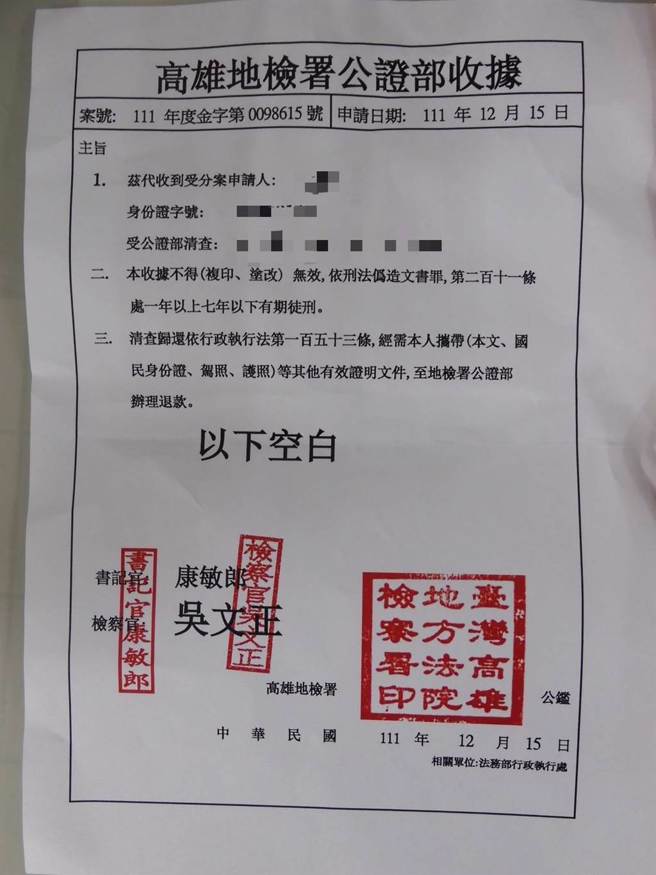 高雄地檢署公證部收據
案號: 111 年度金字第0098615號 申請日期: 111 年 12 月 15 日
主旨
1. 茲代收到受分案申請人:
身份證字號:
受公證部清查:
二. 本收據不得(複印、塗改) 無效, 依刑法偽造文書罪, 第二百十一條
處一年以上七年以下有期徒刑。
三. 清查歸還依行政執行法第一百五十三條, 經需本人攜帶(本文、國
民身份證、駕照、護照)等其他有效證明文件, 至地檢署公證部
辦理退款。
以下空白
書記官 康敏郎
檢察官 吳文正
書記官康敏郎
檢察官吳文正
臺灣高雄
地方法院
檢察署印
高雄地檢署 公鑑
中 華 民 國 111 年 12 月 15 日
相關單位:法務部行政執行處